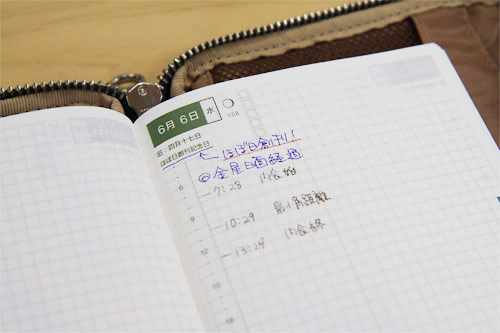 6月 6日 水
168
旧:四月十七日
ほぼ日創刊記念日
← ほぼ日創刊!
@金星日面経過
6
7:28 内食始
9
10:29 最小角距離
12
13:29 内食終